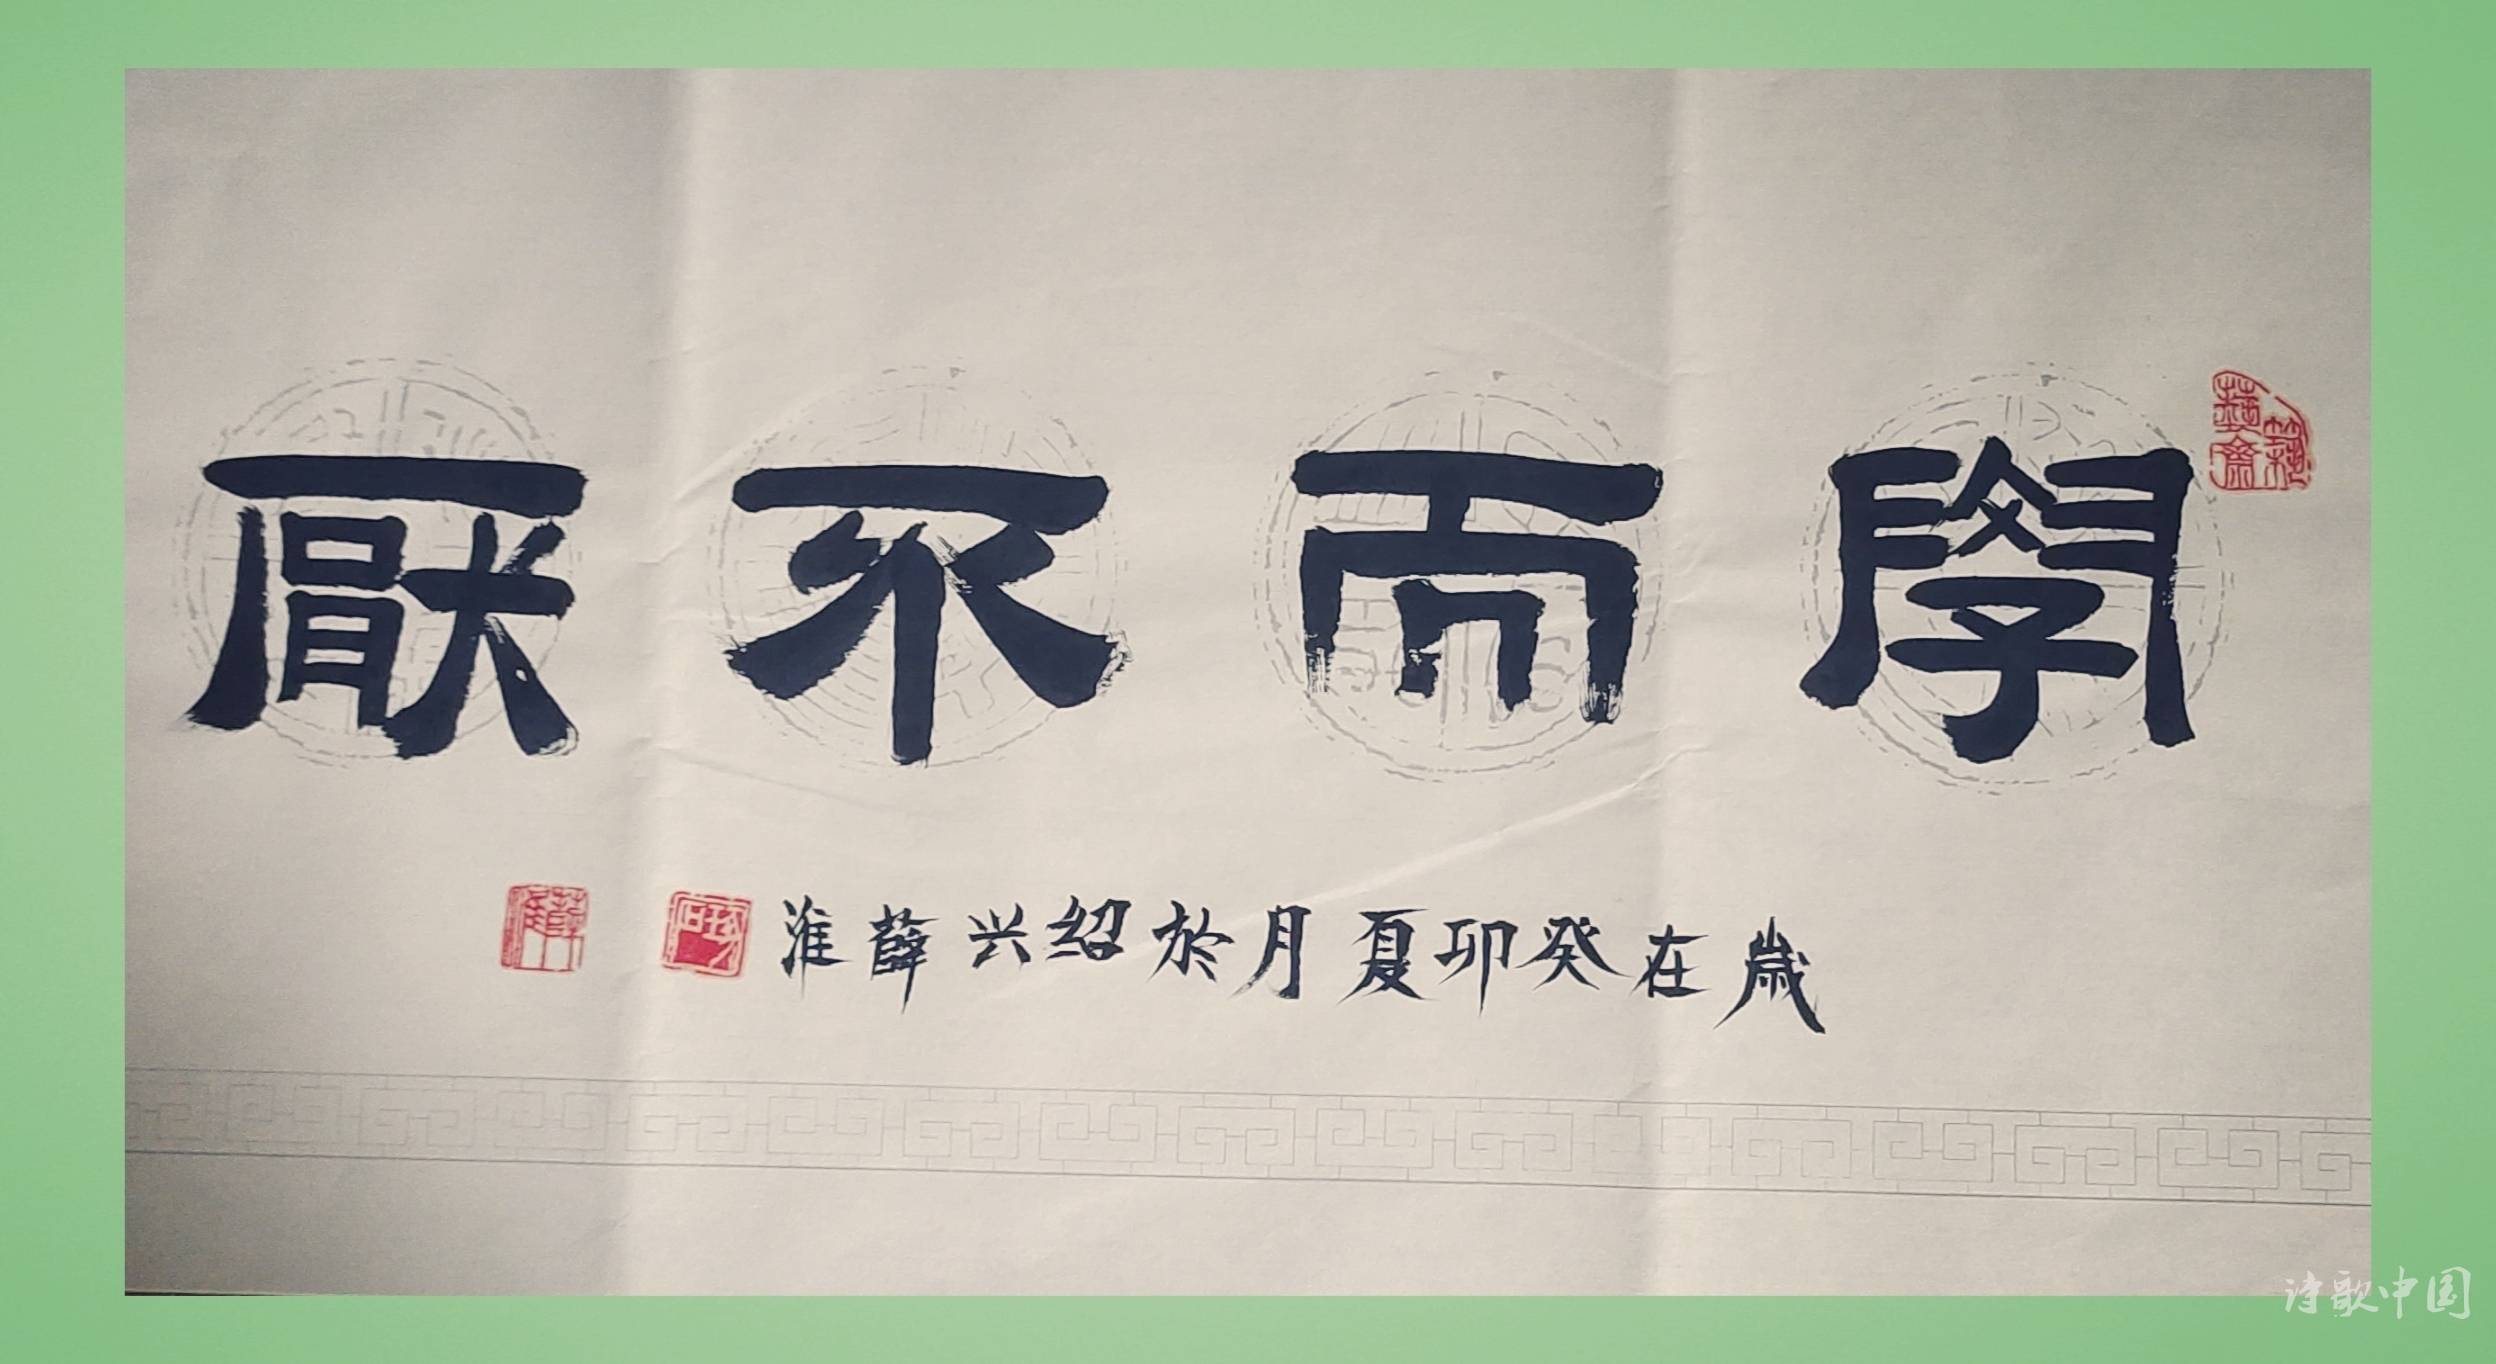 學而不厭
歲在癸卯夏月於绍兴薛淮
诗歌中国